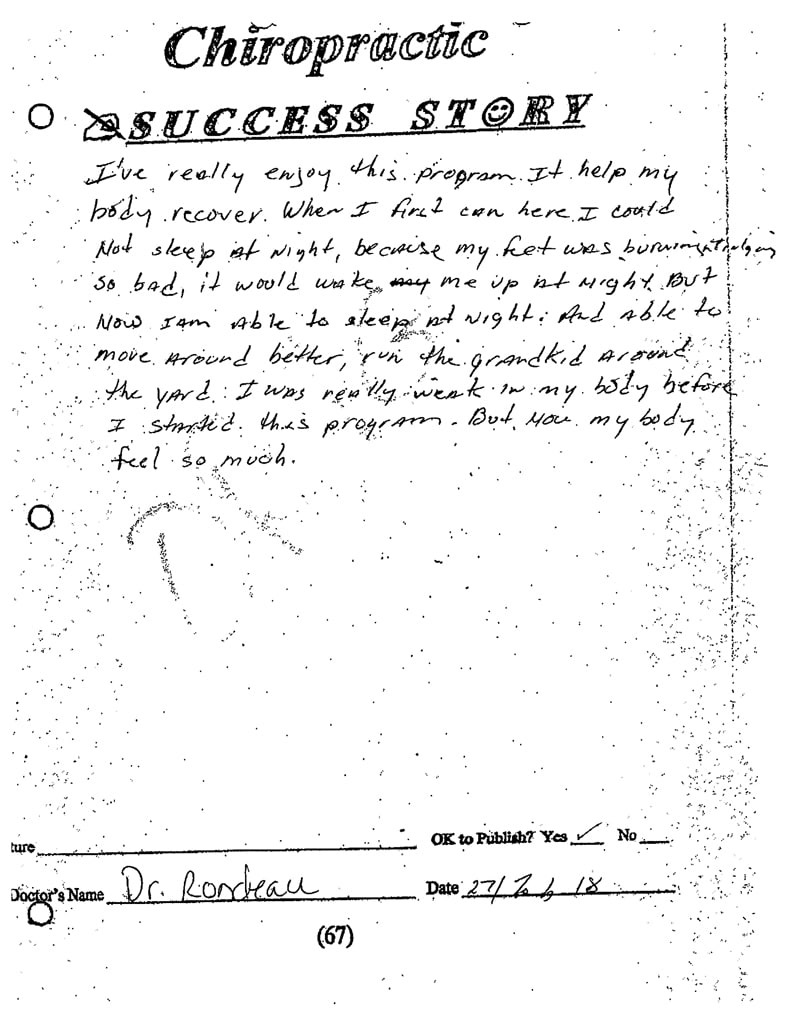 Chiropractic
SUCCESS STORY
I've really enjoy this program. It help my
body recover. When I first can here I could
Not sleep at Night, because my feet was burning
so bad, it would wake me up at Night. But
Now I am Able to sleep at Night. And Able to
move Around better, run the grandkid Around
the yard. I was really weak in my body before
I started this program. But Now my body
feel so much.
OK to Publish? Yes ✓ No
ture
Doctor's Name Dr. Rondeau Date 27/ 18
(67)